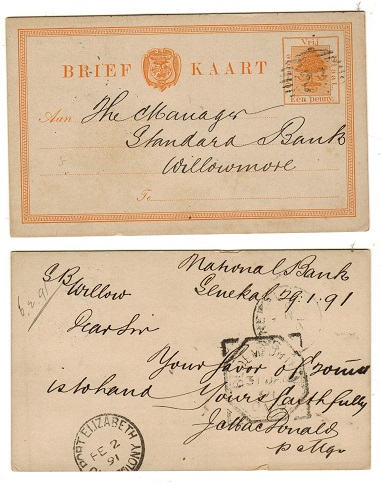 BRIEF KAART
Vrij
Een penny.
Aan The Manager
Standard Bank
Willowmore
Te
National Bank
Senekal 29.1.91
6.2.91
SB
Willow
Dear Sir
Your favor of
is to hand Yours faithfully
J MacDonald
PORT ELIZABETH
FE 2
91